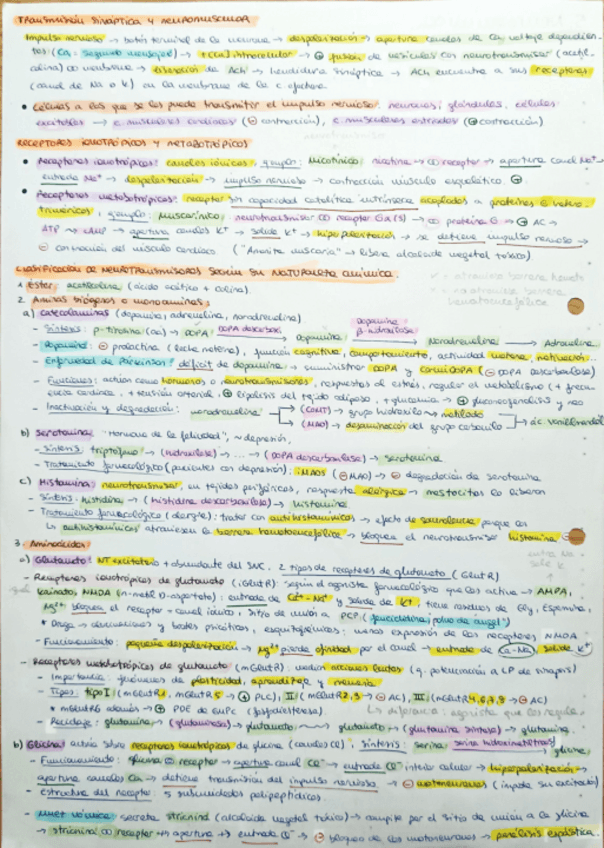 TRANSMISIÓN SINÁPTICA Y NEUROMUSCULAR
Impulso nervioso → botón terminal de la neurona → despolarización → apertura canales de Ca voltaje dependien-
tes (Ca: segundo mensajero) → ↑[Ca] intracelular → ⊕ fusión de vesículas con neurotransmisor (acetil-
colina) ∞ membrana → liberación de Ach → hendidura sináptica → Ach encuentra a sus receptores
(canal de Na o K) en la membrana de la c. efectora
• Células a las que se les puede transmitir el impulso nervioso: neuronas, glándulas, células
excitables → c. musculares cardíacas (⊖ contracción), c. musculares estriadas (⊕ contracción)
RECEPTORES IONOTRÓPICOS Y METABOTRÓPICOS
• Receptores ionotrópicos: canales iónicos, ejemplo: Nicotínico: nicotina → ∞ receptor → apertura canal Na⁺ →
entrada Na⁺ → despolarización → impulso nervioso → contracción músculo esquelético. ⊕
• Receptores metabotrópicos: receptor sin capacidad catalítica intrínseca acoplados a proteínas G hetero-
triméricas, ejemplo: Muscarínico: neurotransmisor ∞ receptor → ∞ proteína G → ⊕ AC →
ATP → cAMP → apertura canales K⁺ → salida K⁺ → hiperpolarización → se detiene impulso nervioso →
⊖ contracción del músculo cardíaco ("Amanita muscaria" → libera alcaloide vegetal tóxico)
CLASIFICACIÓN DE NEUROTRANSMISORES SEGÚN SU NATURALEZA QUÍMICA.
1. Éster: acetilcolina (ácido acético + colina).
2. Aminas biógenas o monoaminas:
a) Catecolaminas (dopamina, adrenalina, noradrenalina)
- Síntesis: P-tirosina (aa) → DOPA DOPA descarbox. → Dopamina Dopamina β-hidroxilasa → Noradrenalina → Adrenalina
- Dopamina: ⊖ prolactina (leche materna), función cognitiva, comportamiento, actividad motora, motivación...
- Enfermedad de Parkinson: déficit de dopamina → suministrar DOPA y carbiDOPA (⊖ DOPA descarboxilasa)
- Funciones: actúan como hormonas o neurotransmisores, respuestas al estrés, regular el metabolismo (+ frecu-
encia cardíaca, + tensión arterial, ⊕ lipólisis del tejido adiposo, + glucemia → ⊕ gluconeogénesis
- Inactivación y degradación: noradrenalina → (COMT) → grupo hidroxilo → metilado
→ (MAO) → desaminación del grupo → ác. vanilmandél
b) Serotonina: "Hormona de la felicidad", ~ depresión,
- Síntesis: triptófano → (hidroxilasa) → ... → (DOPA descarboxilasa) → serotonina
- Tratamiento farmacológico (pacientes con depresión): iMAOs (⊖ MAO) → ⊖ degradación de serotonina
c) Histamina: neurotransmisor, en tejidos periféricos, respuesta alérgica → mastocitos lo liberan
- Síntesis: histidina → (histidina descarboxilasa) → histamina
- Tratamiento farmacológico (alergia): tratar con antihistamínicos → efecto de somnolencia porque los
↳ antihistamínicos atraviesan la barrera hematoencefálica → bloquea el neurotransmisor histamina
3. Aminoácidos
a) Glutamato: NT excitatorio + abundante del SNC. 2 tipos de receptores de glutamato (GluR)
- Receptores ionotrópicos de glutamato (iGluR): según el agonista farmacológico que los activa → AMPA,
kainato, NMDA (n-metil D-aspartato): entrada de Ca²⁺-Na⁺ y salida de K⁺, tiene residuos de Gly, Espermina,
Mg²⁺ bloquea el receptor → canal iónico, sitio de unión a PCP (fenciclidina, polvo de ángel)
* Droga → alucinaciones y brotes psicóticos, esquizofrénicos: menos expresión de los receptores NMDA
- Funcionamiento: pequeña despolarización → Mg²⁺ pierde afinidad por el canal → entrada de Ca-Na, salida K⁺
- Receptores metabotrópicos de glutamato (mGluR): median acciones lentas (q. potenciación a LP de sinapsis)
- Importancia: fenómenos de plasticidad, aprendizaje y memoria
- Tipos: tipo I (mGluR1, mGluR5 → ⊕ PLC), II (mGluR2,3 → ⊖ AC), III (mGluR4,6,7,8 → ⊖ AC)
* mGluR6 además → ⊕ PDE de GMPc (fosfodiesterasa)
- Reciclaje: glutamina → (glutaminasa) → glutamato → glutamato → (glutamina sintasa) → glutamina.
b) Glicina: actúa sobre receptores ionotrópicos de glicina (canales Cl⁻). Síntesis: serina → glicina
- Funcionamiento: glicina ∞ receptor → apertura canal Cl⁻ → entrada Cl⁻ interior celular → hiperpolarización →
apertura canales Ca → detiene transmisión del impulso nervioso → ⊖ motoneuronas (impide su excitación)
Estructura del receptor: 5 subunidades polipeptídicas.
- Nuez vómica: secreta stricnina (alcaloide vegetal tóxico) → compite por el sitio de unión a la glicina
→ stricnina ∞ receptor → apertura → entrada Cl⁻ → ⊖ bloqueo de las motoneuronas → parálisis espástica.